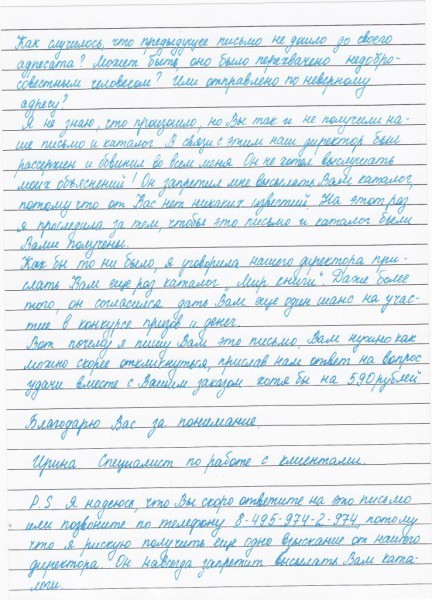 Как случилось, что предыдущее письмо не дошло до своего
адресата? Может быть, оно было перехвачено недобро-
совестным человеком? Или отправлено по неверному
адресу?
Я не знаю, что произошло, но Вы так и не получили на-
ше письмо и каталог. В связи с этим наш директор был
рассержен и обвинил во всем меня. Он не хотел выслушать
моих объяснений! Он запретил мне высылать Вам каталог,
потому что от Вас нет никаких известий. На этот раз
я проследила за тем, чтобы это письмо и каталог были
Вами получены.
Как бы то ни было, я уговорила нашего директора при-
слать Вам еще раз каталог "Мир книги". Даже более
того, он согласился дать Вам еще один шанс на учас-
тие в конкурсе призов и денег.
Вот почему я пишу Вам это письмо, Вам нужно как
можно скорее откликнуться, прислав нам ответ на вопрос
удачи вместе с Вашим заказом хотя бы на 590 рублей
Благодарю Вас за понимание.
Ирина Специалист по работе с клиентами.
P.S Я надеюсь, что Вы скоро ответите на это письмо
или позвоните по телефону 8-495-974-2-974, потому
что я рискую получить еще одно взыскание от нашего
директора. Он навсегда запретит высылать Вам ката-
логи.